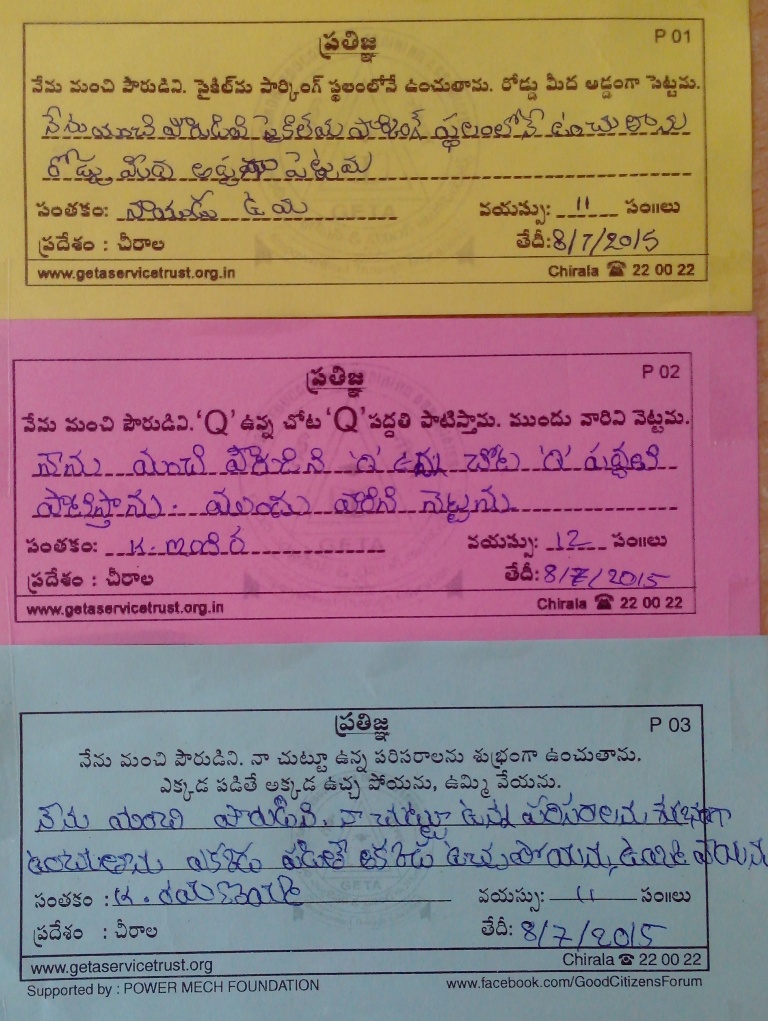 ప్రతిజ్ఞ
P 01
నేను మంచి పౌరుడిని. సైకిల్‌ను పార్కింగ్ స్థలంలోనే ఉంచుతాను. రోడ్డు మీద అడ్డంగా పెట్టను.
నేను మంచి పౌరుడిని సైకిల్‌ను పార్కింగ్ స్థలంలోనే ఉంచుతాను
రోడ్డు మీద అడ్డంగా పెట్టను
సంతకం: వయస్సు: 11 సం॥లు
ప్రదేశం : చీరాల తేదీ: 8/7/2015
www.getaservicetrust.org.in Chirala ☎ 22 00 22
ప్రతిజ్ఞ
P 02
నేను మంచి పౌరుడిని. 'Q' ఉన్న చోట 'Q' పద్దతి పాటిస్తాను. ముందు వారిని నెట్టను.
నేను మంచి పౌరుడిని 'Q' ఉన్న చోట 'Q' పద్దతి
పాటిస్తాను. ముందు వారిని నెట్టను
సంతకం: K. వయస్సు: 12 సం॥లు
ప్రదేశం : చీరాల తేదీ: 8/7/2015
www.getaservicetrust.org.in Chirala ☎ 22 00 22
ప్రతిజ్ఞ
P 03
నేను మంచి పౌరుడిని. నా చుట్టూ ఉన్న పరిసరాలను శుభ్రంగా ఉంచుతాను.
ఎక్కడ పడితే అక్కడ ఉచ్చ పోయను, ఉమ్మి వేయను.
నేను మంచి పౌరుడిని. నా చుట్టూ ఉన్న పరిసరాలను శుభ్రంగా
ఉంచుతాను ఎక్కడ పడితే అక్కడ ఉచ్చ పోయను, ఉమ్మి వేయను
సంతకం : K. వయస్సు: 11 సం॥లు
ప్రదేశం : చీరాల తేదీ: 8/7/2015
www.getaservicetrust.org Chirala ☎ 22 00 22
Supported by : POWER MECH FOUNDATION www.facebook.com/GoodCitizensForum